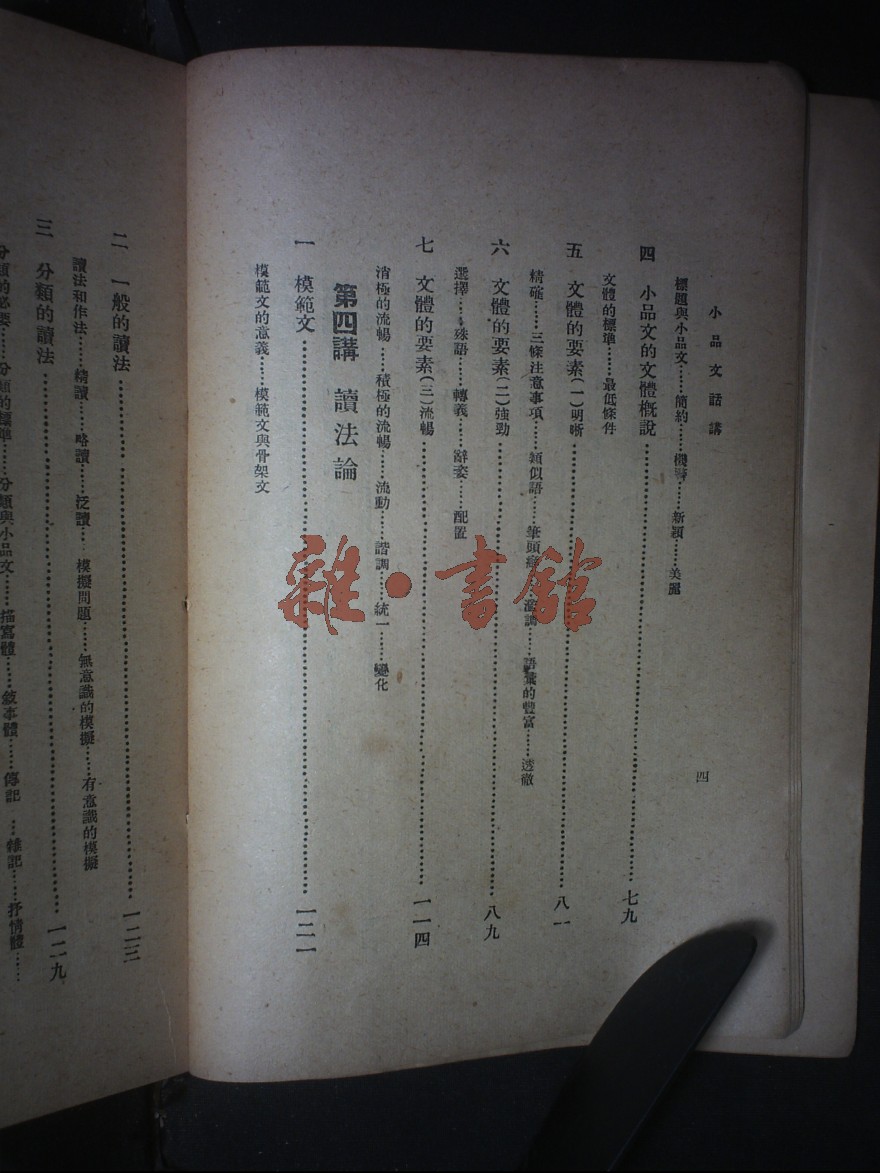 小品文話講
四
標題與小品文……簡約……機警……新穎……美麗
四 小品文的文體概說……七九
文體的標準……最低條件
五 文體的要素(一)明晰……八一
精確……三條注意事項……類似語……筆頭……濫調……語彙的豐富……透徹
六 文體的要素(二)強勁……八九
選擇……殊語……轉義……辭姿……配置
七 文體的要素(三)流暢……一一四
消極的流暢……積極的流暢……流動……諧調……統一……變化
第四講 讀法論
一 模範文……一二一
模範文的意義……模範文與骨架文
二 一般的讀法……一二三
讀法和作法……精讀……略讀……泛讀……模擬問題……無意識的模擬……有意識的模擬
三 分類的讀法……一二九
分類的必要……分類的標準……分類與小品文……描寫體……敘事體……傳記…雜記……抒情體……
雜·書館